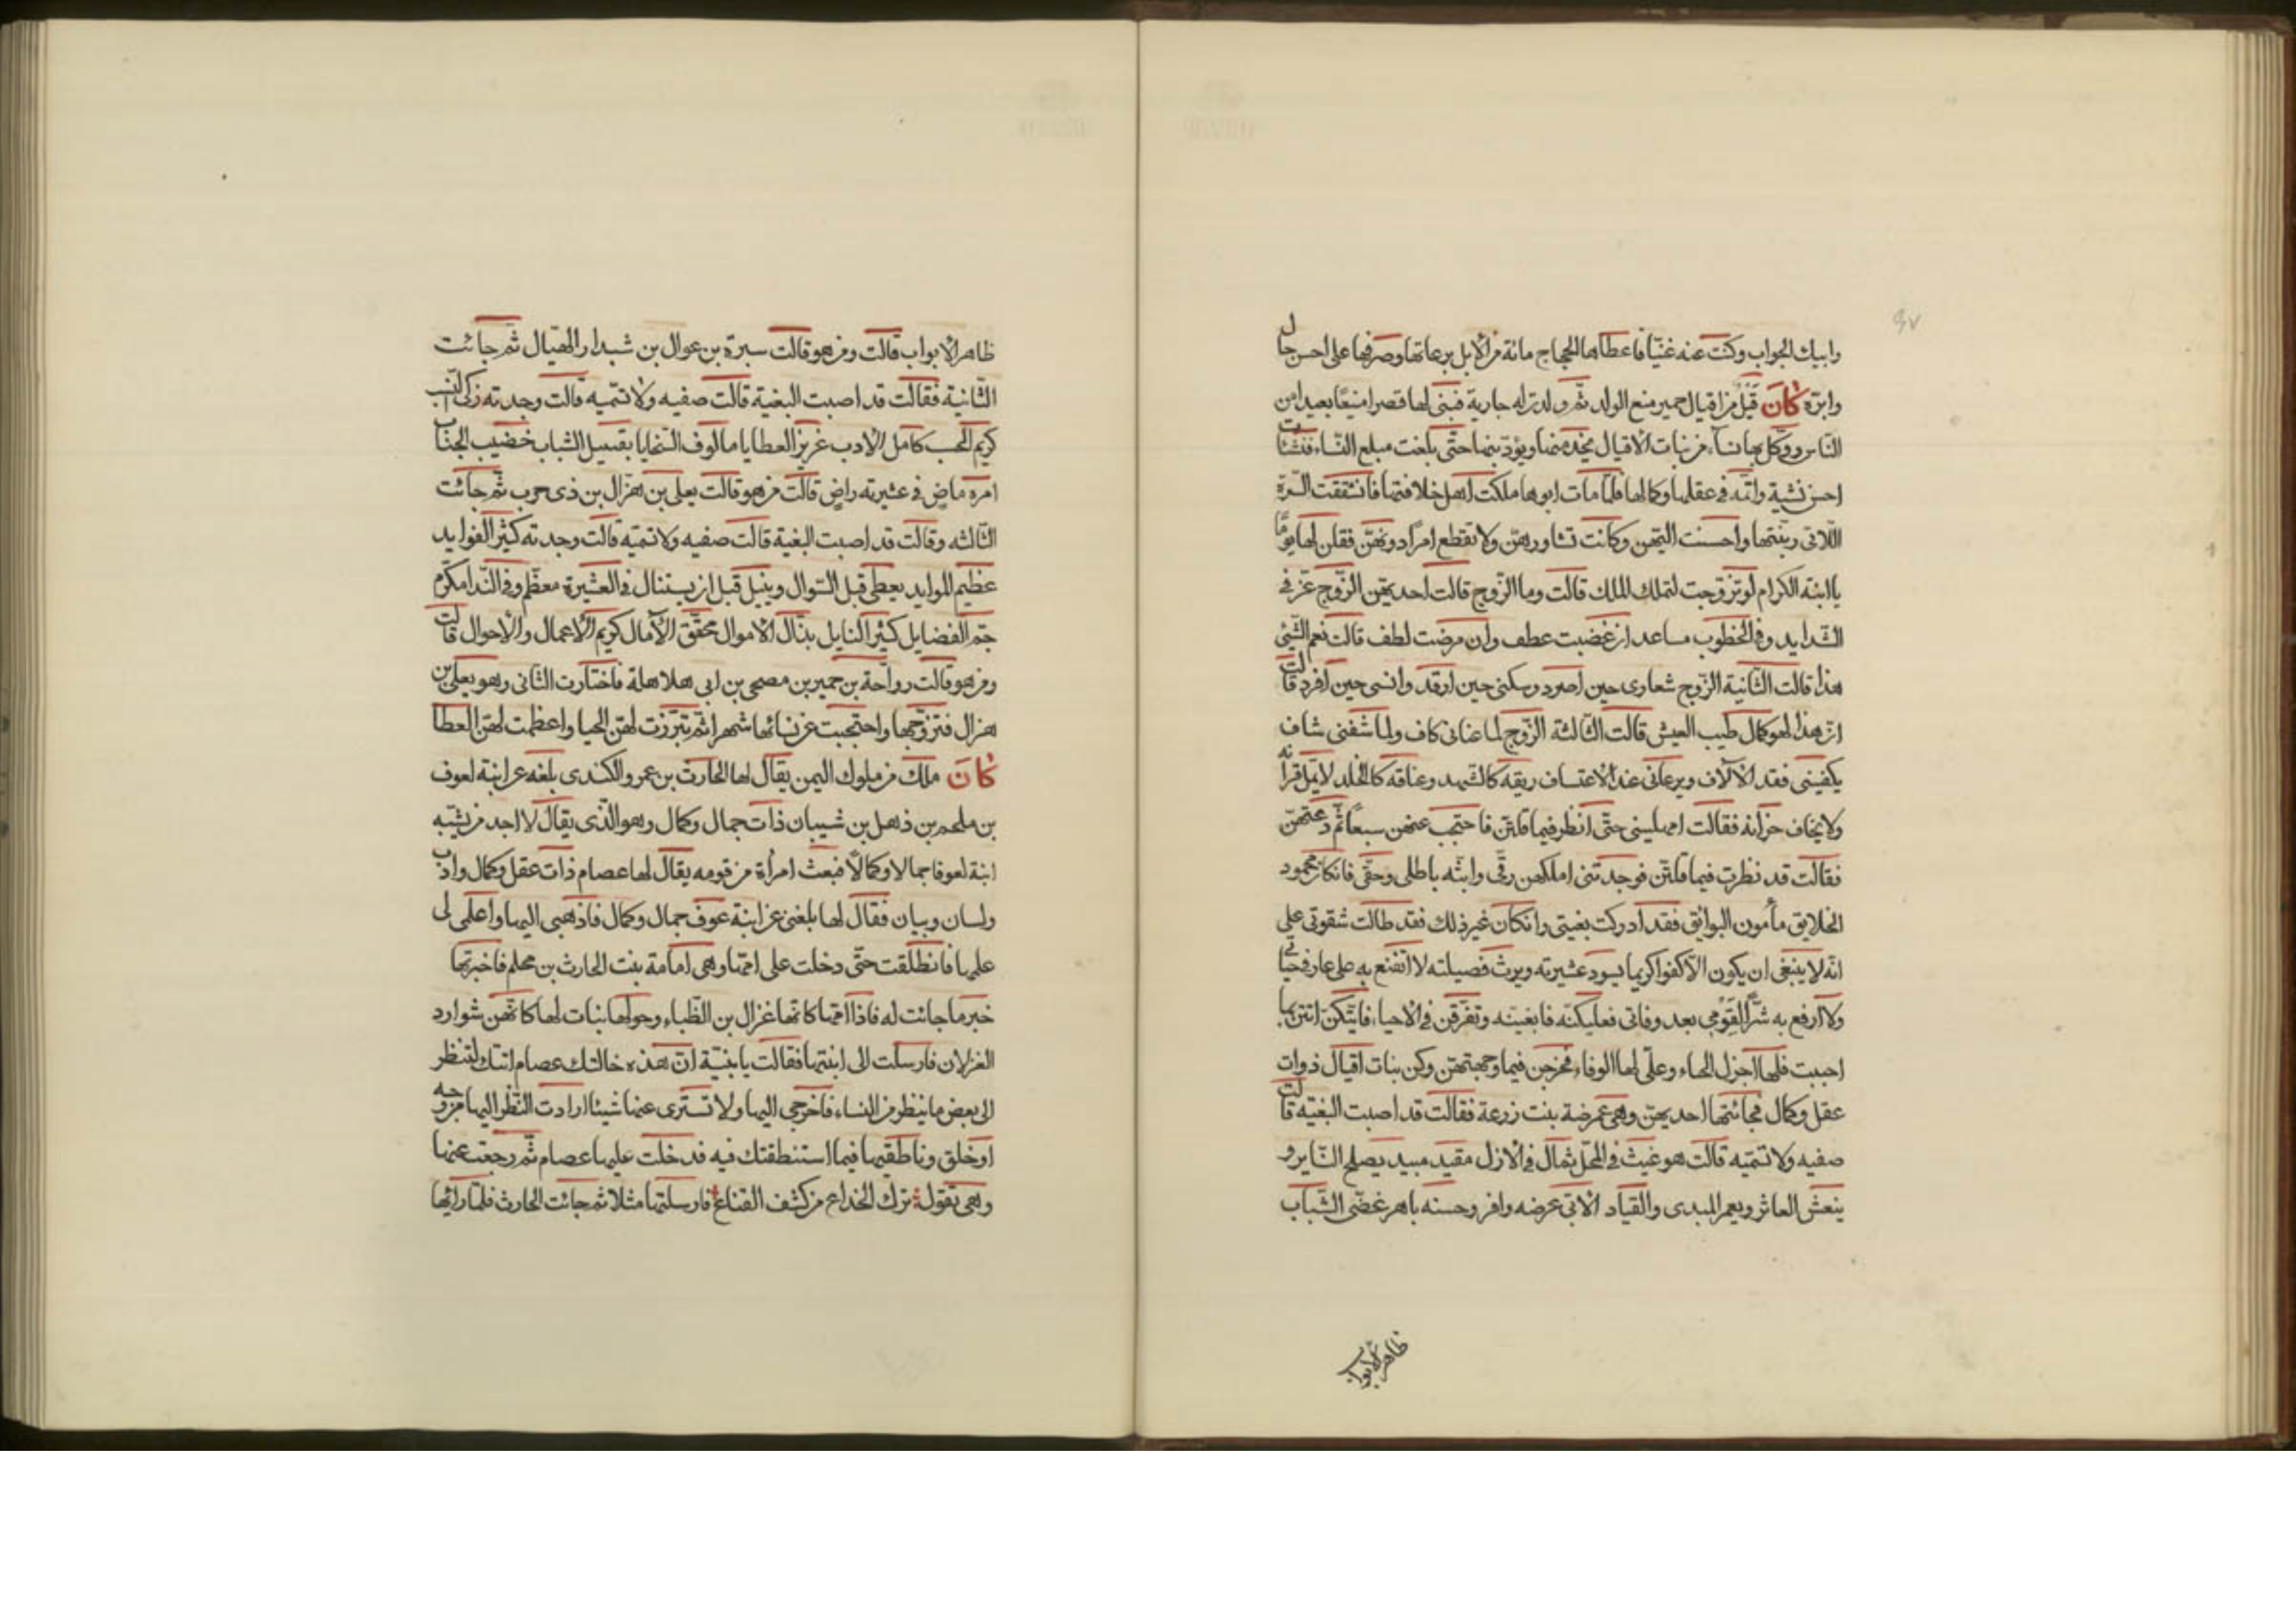 ٩٧
وابيك الجواب وكنت عنه غنيّا فاعطاها الحجاج مائة من الابل برعاتها وصرفها على احسن حال
وابرّه كَانَ قَيْل من اقيال حمير منع الولد ثمّ ولدت له جارية فبنى لها قصرا منيعًا بعيدا من
النّاس ووكّل بها نساء من بنات الاقيال يخدمنها ويؤدّبنها حتّى بلغت مبلغ النّساء فنشئات
احسن نشية واتمّه فى عقلها وكمالها فلمّا مات ابوها ملكت اهل خلافتها فانتفقت النّسرة
اللّاتى ربّنتها واحسنت اليهن وكانت تشاورهنّ ولا تقطع امرًا دونهنّ فقلن لها يومًا
يا ابنة الكرام لو تزوّجت لتملك الملك قالت وما الزّوج قالت احديهّن الزّوج عزّ فى
الشّدايد وفى الخطوب مساعد ان غضبت عطف وان مرضت لطف قالت نعم الشّئ
هذا قالت الثّانية الزّوج شعارى حين اصرد وسكنى حين ارقد وانسى حين افرد قالت
انّ هذا لهو كمال طيب العيش قالت الثّالثة الزّوج لما عنانى كاف ولما شفّنى شاف
يكفينى فقد الآلاف ويرعانى عند الاعتساف ريقه كالشّهد وعناقه كالخلد لا يملّ قرانه
ولا يخاف حرانه فقالت امهلينى حتّى انظر فيما قلتنّ فاحتجب عنهن سبعًا ثمّ دعتهنّ
فقالت قد نظرت فيما قلتنّ فوجدتنى املكهن رقّى وابثّه باطلى وحقّى فانكان محمود
الخلايق مأمون البوائق فقد ادركت بغيتى وانكان غير ذلك فقد طالت شقوتى على
انّه لا ينبغى ان يكون الّا كفوا كريما يسود عشيرته ويربّ فصيلته لا اتقنع به على عار فى حياتى
ولا ارفع به شرّا لقومى بعد وفاتى فعليكنّه فابغينه وتفرّقن فى الاحياء فايّتكنّ اتتنى بما
احببت فلها اجزل الحباء وعلّى لها الوفاء فخرجن فيما وجهتهنّ وكن بنات اقيال ذوات
عقل وكمال فجائتها احديهنّ وهى عمرضة بنت زرعة فقالت قد اصبت البغيّه قالت
صفيه ولا تسمّيه قالت هو غيث فى المحل ثمال فى الازل مقيد مبيد يصلح النّاير و
ينعش العاثر ويعمر المبدى والقياد الابّى عرضه وافر وحسنه باهر غضّى الشّباب
ظاهر الابواب
ظاهر الابواب قالت ومن هو قالت سبرة بن عوال بن شبدار الهيّال ثمّ جائت
الثّانية فقالت قد اصبت البغية قالت صفيه ولا تسمّيه قالت وجدته زكى النّسب
كريم الحسب كامل الادب غزيز العطايا مالوف السّخايا بقسيل الشّباب خضيب الجناب
امره ماض فى عشيرته راض قالت من هو قالت يعلى بن هزّال بن ذى حرب ثمّ جائت
الثّالثه وقالت قد اصبت البغية قالت صفيه ولا تسمّيه قالت وجدته كثير الفوايد
عظيم الموايد يعطى قبل السّوال وينيل قبل ان يستنال فى العشيرة معظّم وفى النّدا مكرّم
جمّ الفضايل كثير النايل بذّال الاموال محقّق الآمال كريم الاعمال والاحوال قالت
ومن هو قالت رواحة بن حمير بن مصحى بن ابى هلاهلة فاختارت الثّانى وهو يعلى بن
هزال فتزوّجها واحتجبت عن نسائها شهرا ثمّ تبرّزت لهنّ الحيا واعظمت لهنّ العطا
كَانَ ملك من ملوك اليمن يقال لها الحارث بن عمرو الكندى بلغه عن ابنة لعوف
بن ملحم بن ذهل بن شيبان ذات جمال وكمال وهو الّذى يقال لا احد من يشبه
ابنة لعوف جمالا وكمالًا فبعث امرأة من قومه يقال لها عصام ذات عقل وكمال وادب
ولسان وبيان فقال لها بلغنى عن ابنة عوف جمال وكمال فاذهبى اليها واعلمى لى
علمها فانطلقت حتّى دخلت على امّها وهى امامة بنت الحارث بن محلم فاخبرتها
خبر ما جائت له فاذا امّها كانّها غزال بن الظّباء وحولها بنات لها كانّهن شوارد
الغزلان فارسلت الى ابنتها فقالت يا بنيّة انّ هذه خالتك عصام اتتك لتنظر
الى بعض ما ينظر من النساء فاخرجى اليها ولا تستّرى عنها شيئا ارادت النّظر اليها من وجه
او خلق وناطقيها فيما استنطقتك فيه فدخلت عليها عصام ثمّ رجعت عنها
وهى تقول ترك الخداع من كشف القناع فارسلتها مثلا ثم جائت الحارث فلمّا رائها